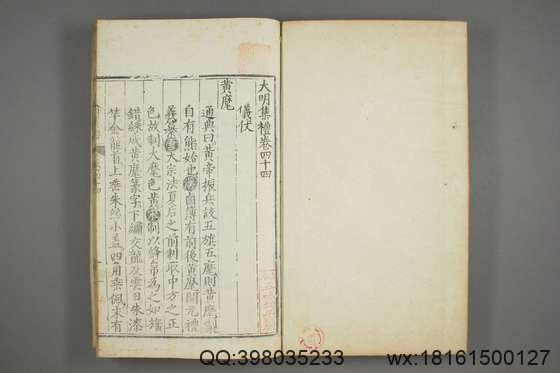 大明集禮卷四十四
儀仗
黃麾
通典曰黃帝振兵設五旗五麾則黃麾制
自有熊始也漢鹵簿有前後黃麾開元禮
義纂唐太宗法夏后之前制取中方之正
色故制大麾色黃宋制以絳帛為之如旛
錯綵成黃麾篆字下繡交龍及雲日朱漆
竿金龍首上垂朱絲小蓋四角垂佩末有
QQ:398035233
wx:18161500127